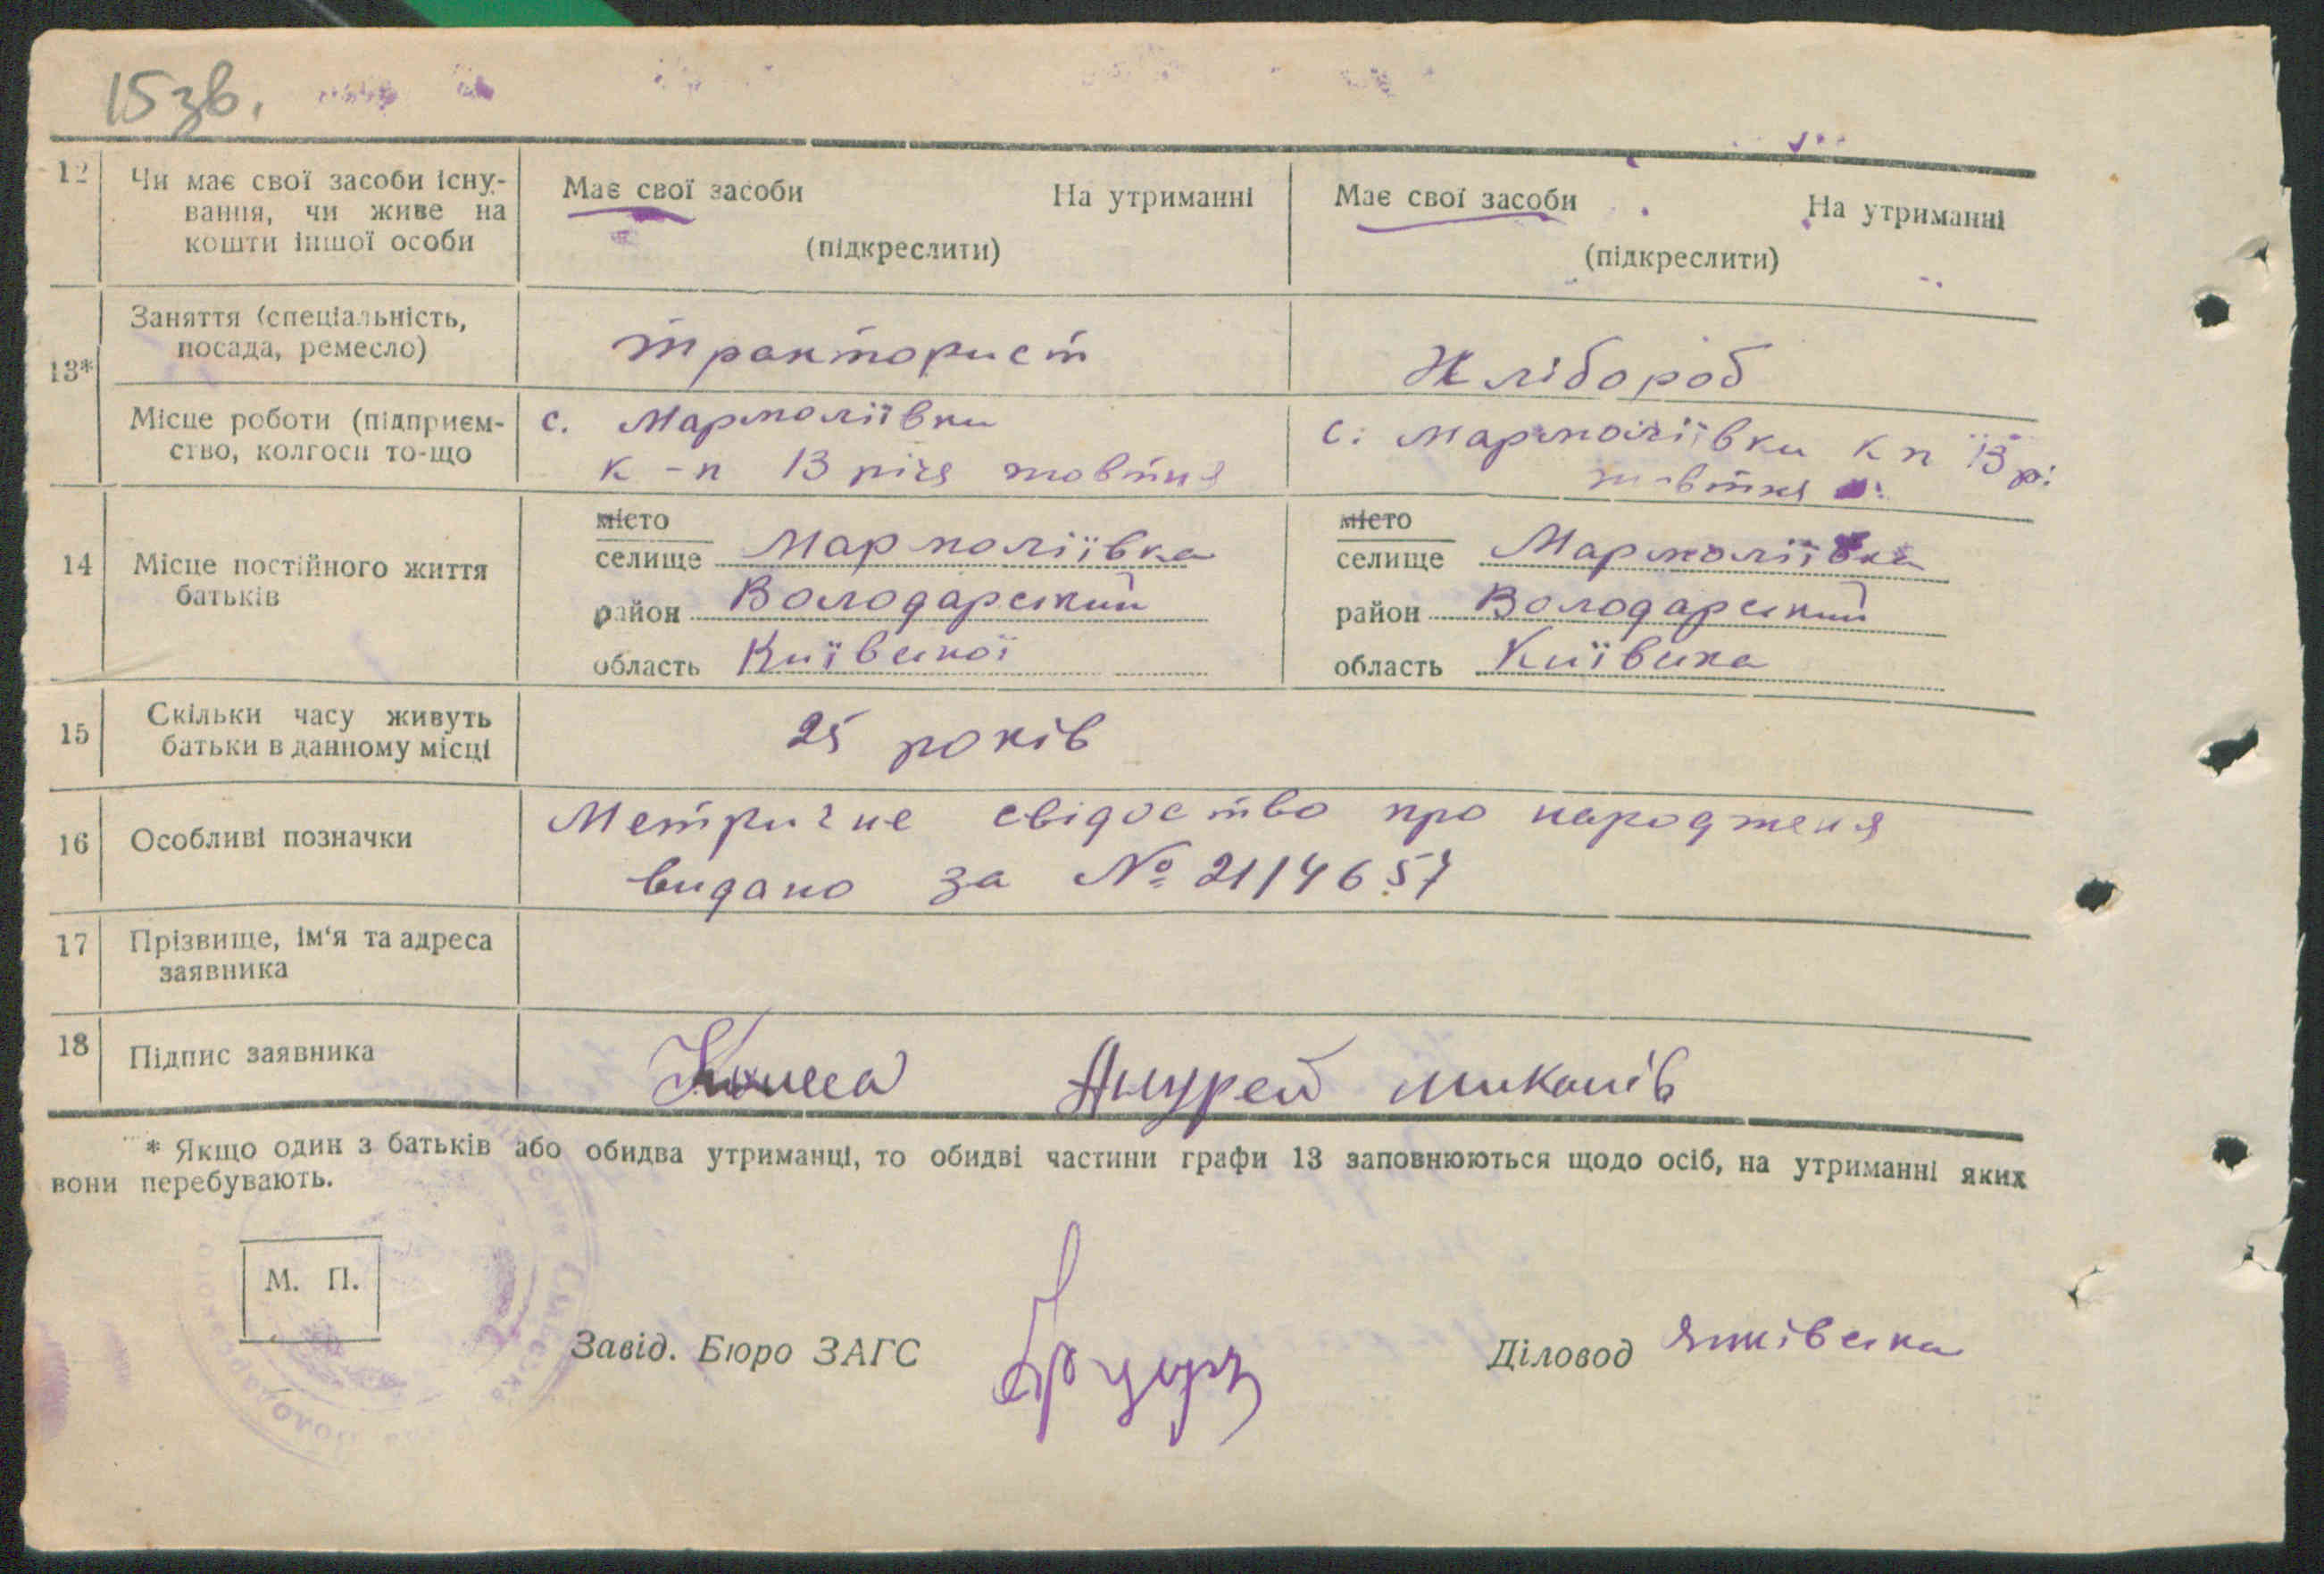 15 зв.
12 Чи має свої засоби існу-
вання, чи живе на
кошти іншої особи
Має свої засоби На утриманні
(підкреслити)
Має свої засоби На утриманні
(підкреслити)
13*
Заняття (спеціальність,
посада, ремесло)
тракторист
Хлібороб
Місце роботи (підприєм-
ство, колгосп то-що
с. Мармоліївки
к-п 13 річя жовтня
с. Мармоліївки к п 13 рі
жовтня
14 Місце постійного життя
батьків
місто
селище Мармоліївка
район Володарський
область Київської
місто
селище Мармоліївка
район Володарський
область Київська
15 Скільки часу живуть
батьки в данному місці
25 років
16 Особливі позначки
Метричне свідоство про народженя
видано за № 21/4657
17 Прізвище, ім'я та адреса
заявника
18 Підпис заявника
Андрей
* Якщо один з батьків або обидва утриманці, то обидві частини графи 13 заповнюються щодо осіб, на утриманні яких
вони перебувають.
М. П.
Завід. Бюро ЗАГС
Діловод Янківська